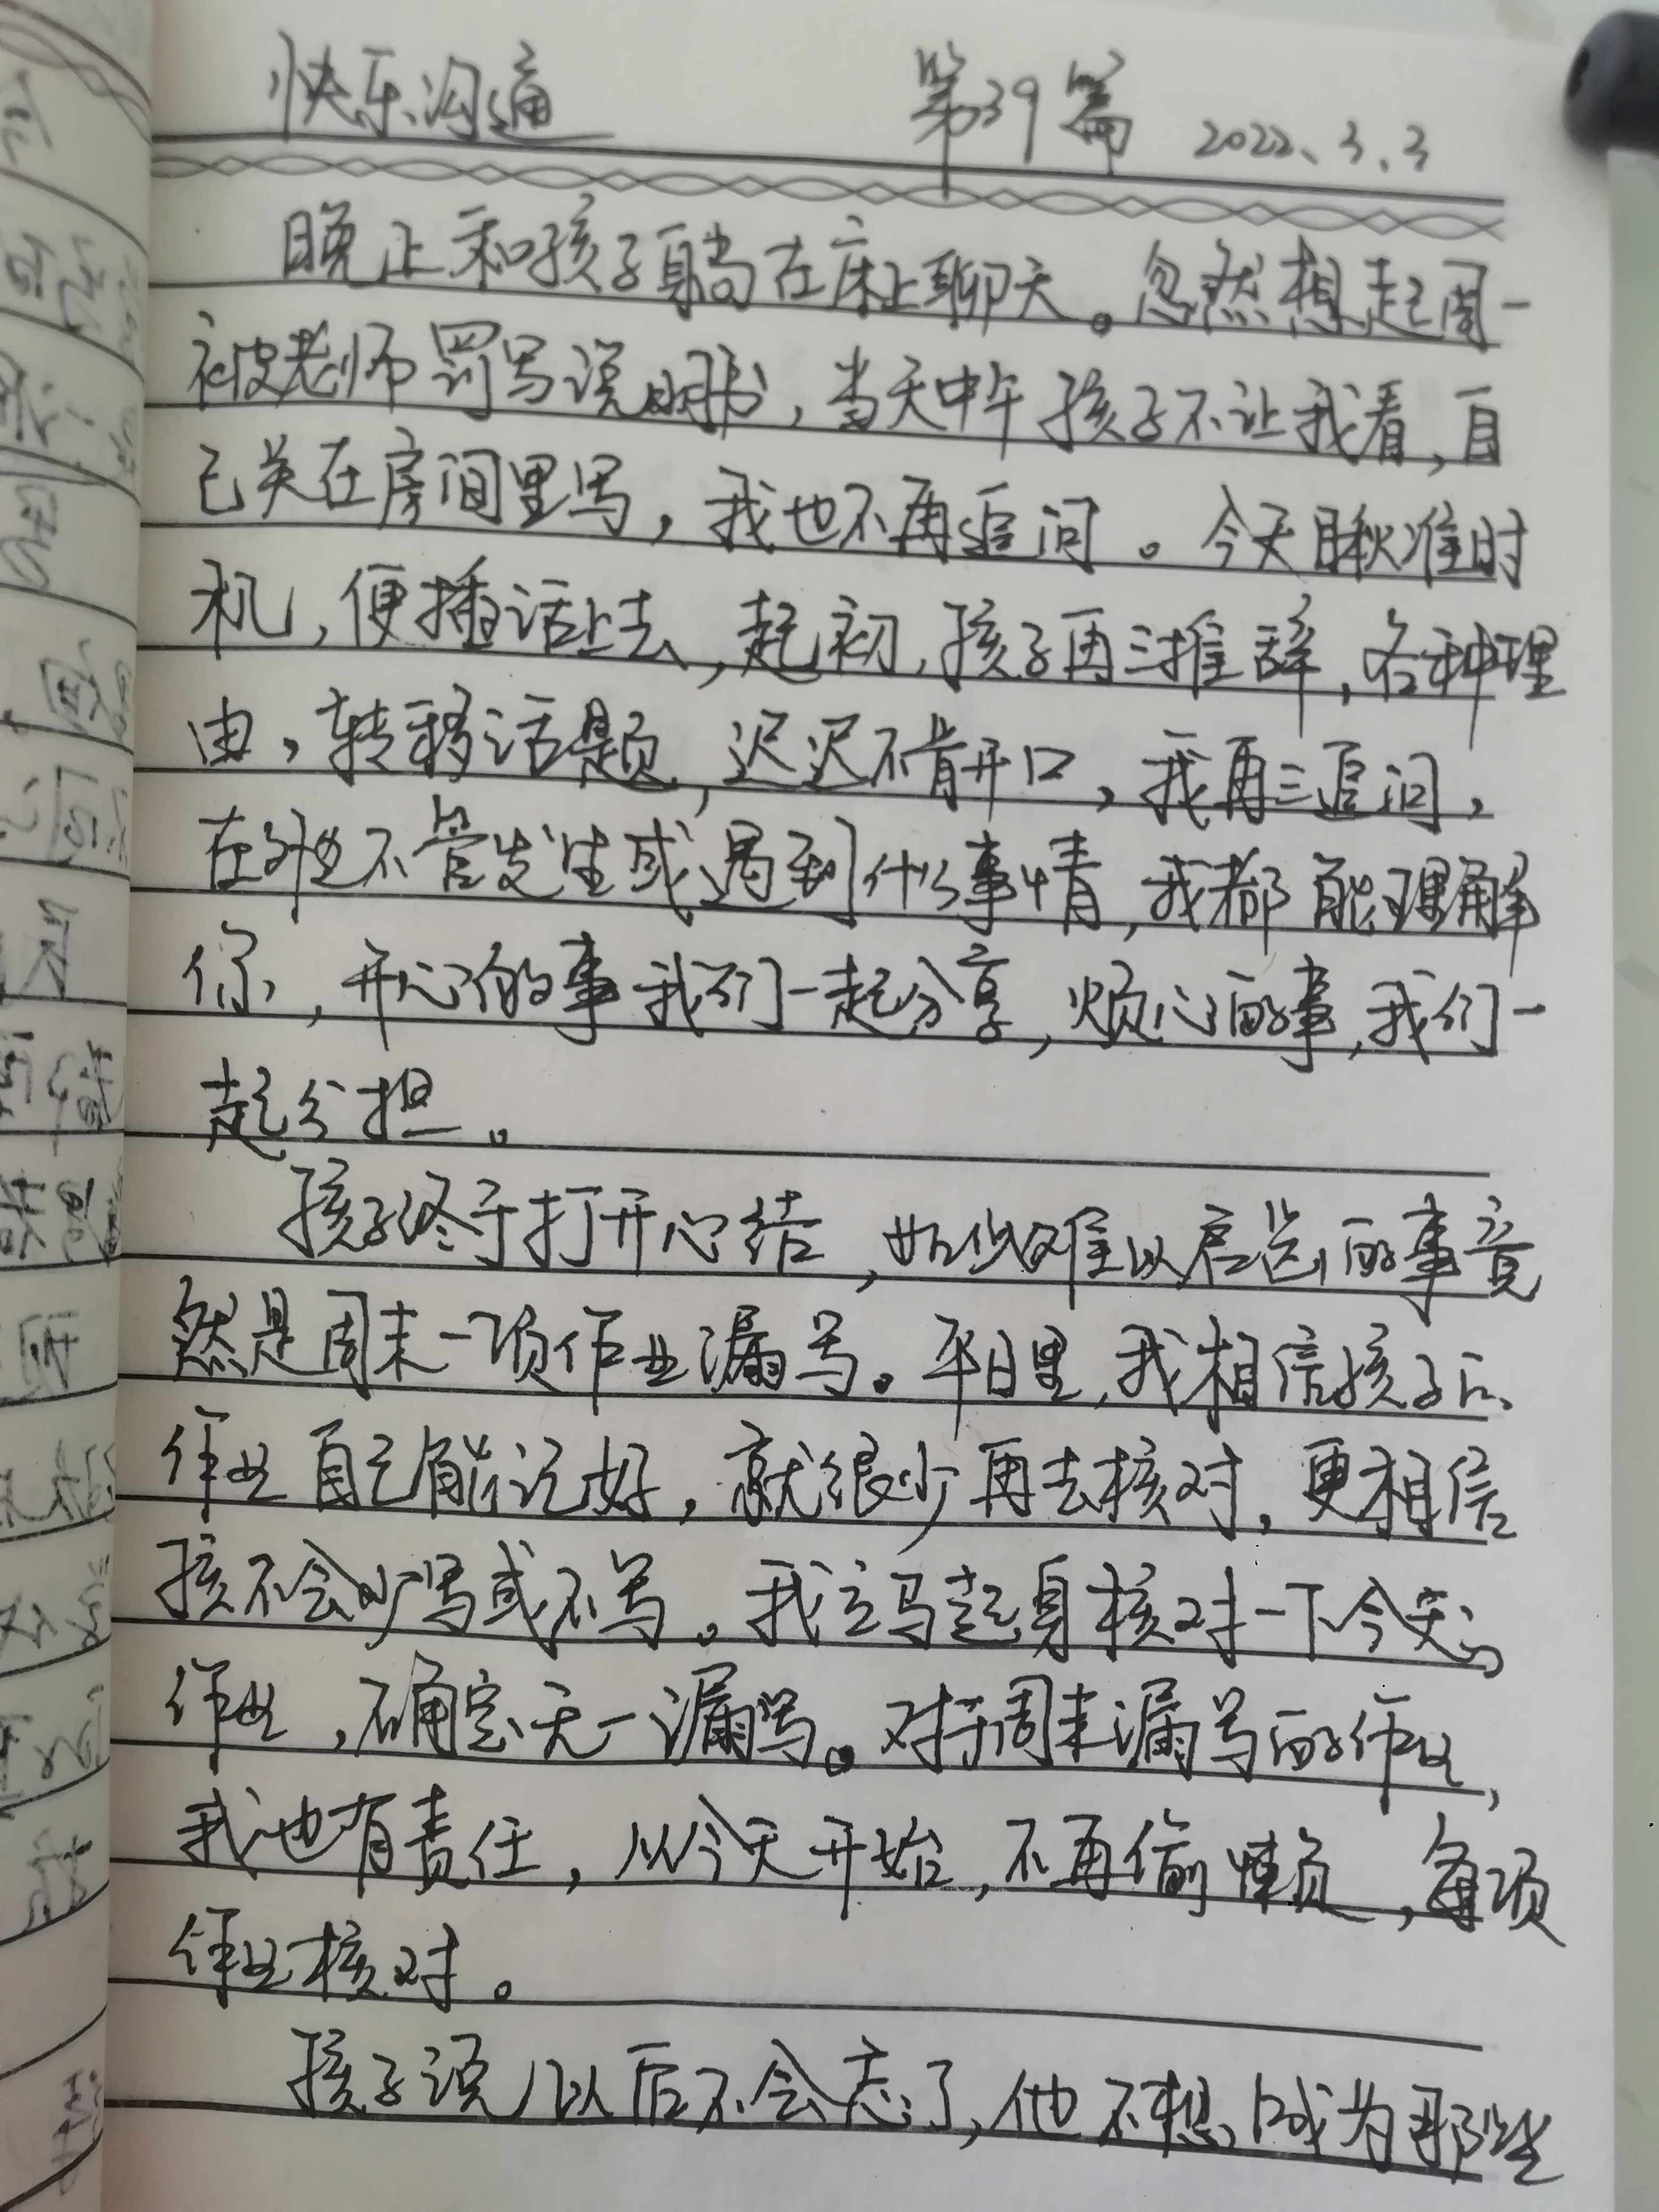 快乐沟通 第39篇 2022.3.3
晚上和孩子躺在床上聊天。忽然想起周一
被老师罚写说明书，当天中午孩子不让我看，自
己关在房间里写，我也不再追问。今天瞅准时
机，便插话上去，起初，孩子再三推辞，各种理
由，转移话题，迟迟不肯开口，我再三追问，
在外边不管发生或遇到什么事情，我都能理解
你，开心的事我们一起分享，烦心的事，我们一
起分担。
孩子终于打开心结，如此难以启齿的事竟
然是周末一项作业漏写。平日里，我相信孩子的
作业自己能记好，就很少再去核对，更相信
孩不会少写或不写。我立马起身核对一下今天的
作业，确定无一漏写。对于周末漏写的作业，
我也有责任，从今天开始，不再偷懒，每项
作业核对。
孩子说以后不会忘了，他不想成为那些